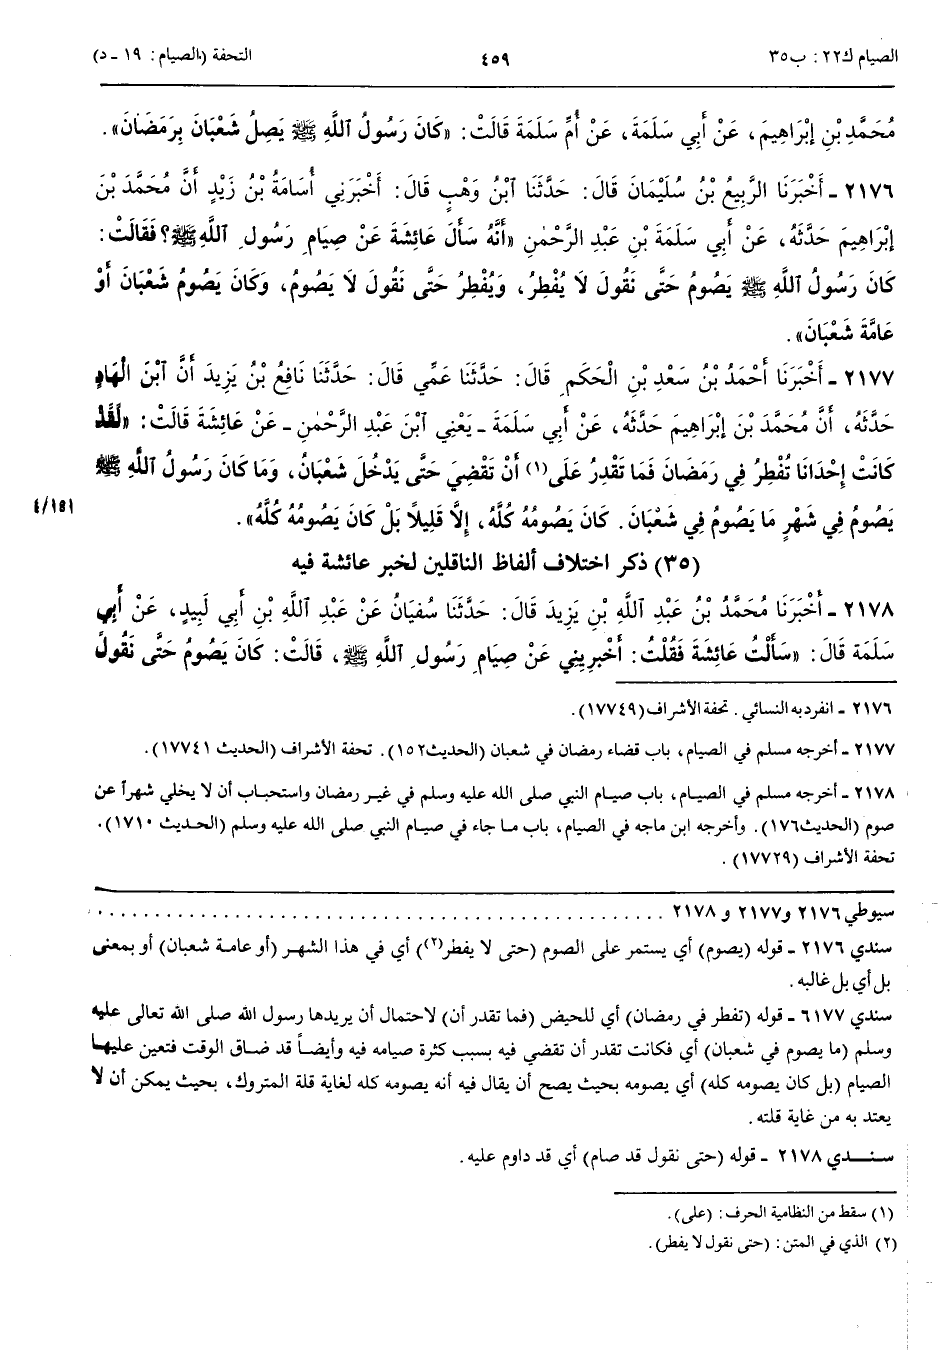 الصيام ك٢٢: ب٣٥
٤٥٩
التحفة (الصيام: ١٩ ـ د)
مُحَمَّدِ بْنِ إِبْرَاهِيمَ، عَنْ أَبِي سَلَمَةَ، عَنْ أُمِّ سَلَمَةَ قَالَتْ: «كَانَ رَسُولُ ٱللَّهِ ﷺ يَصِلُ شَعْبَانَ بِرَمَضَانَ».
٢١٧٦ ـ أَخْبَرَنَا الرَّبِيعُ بْنُ سُلَيْمَانَ قَالَ: حَدَّثَنَا ٱبْنُ وَهْبٍ قَالَ: أَخْبَرَنِي أُسَامَةُ بْنُ زَيْدٍ أَنَّ مُحَمَّدَ بْنَ
إِبْرَاهِيمَ حَدَّثَهُ، عَنْ أَبِي سَلَمَةَ بْنِ عَبْدِ الرَّحْمٰنِ «أَنَّهُ سَأَلَ عَائِشَةَ عَنْ صِيَامِ رَسُولِ ٱللَّهِ ﷺ؟ فَقَالَتْ:
كَانَ رَسُولُ ٱللَّهِ ﷺ يَصُومُ حَتَّى نَقُولَ لَا يُفْطِرُ، وَيُفْطِرُ حَتَّى نَقُولَ لَا يَصُومُ، وَكَانَ يَصُومُ شَعْبَانَ أَوْ
عَامَّةَ شَعْبَانَ».
٢١٧٧ ـ أَخْبَرَنَا أَحْمَدُ بْنُ سَعْدِ بْنِ الْحَكَمِ قَالَ: حَدَّثَنَا عَمِّي قَالَ: حَدَّثَنَا نَافِعُ بْنُ يَزِيدَ أَنَّ ٱبْنَ الْهَادِ
حَدَّثَهُ، أَنَّ مُحَمَّدَ بْنَ إِبْرَاهِيمَ حَدَّثَهُ، عَنْ أَبِي سَلَمَةَ ـ يَعْنِي ٱبْنَ عَبْدِ الرَّحْمٰنِ ـ عَنْ عَائِشَةَ قَالَتْ: «لَقَدْ
كَانَتْ إِحْدَانَا تُفْطِرُ فِي رَمَضَانَ فَمَا تَقْدِرُ عَلَى(١) أَنْ تَقْضِيَ حَتَّى يَدْخُلَ شَعْبَانُ، وَمَا كَانَ رَسُولُ ٱللَّهِ ﷺ
يَصُومُ فِي شَهْرٍ مَا يَصُومُ فِي شَعْبَانَ. كَانَ يَصُومُهُ كُلَّهُ، إِلَّا قَلِيلًا بَلْ كَانَ يَصُومُهُ كُلَّهُ».
٤/١٥١
(٣٥) ذكر اختلاف ألفاظ الناقلين لخبر عائشة فيه
٢١٧٨ ـ أَخْبَرَنَا مُحَمَّدُ بْنُ عَبْدِ اللَّهِ بْنِ يَزِيدَ قَالَ: حَدَّثَنَا سُفْيَانُ عَنْ عَبْدِ اللَّهِ بْنِ أَبِي لَبِيدٍ، عَنْ أَبِي
سَلَمَةَ قَالَ: «سَأَلْتُ عَائِشَةَ فَقُلْتُ: أَخْبِرِينِي عَنْ صِيَامِ رَسُولِ ٱللَّهِ ﷺ، قَالَتْ: كَانَ يَصُومُ حَتَّى نَقُولَ
٢١٧٦ ـ انفرد به النسائي. تحفة الأشراف (١٧٧٤٩).
٢١٧٧ ـ أخرجه مسلم في الصيام، باب قضاء رمضان في شعبان (الحديث ١٥٢). تحفة الأشراف (الحديث ١٧٧٤١).
٢١٧٨ ـ أخرجه مسلم في الصيام، باب صيام النبي صلى الله عليه وسلم في غير رمضان واستحباب أن لا يخلي شهراً عن
صوم (الحديث ١٧٦). وأخرجه ابن ماجه في الصيام، باب ما جاء في صيام النبي صلى الله عليه وسلم (الحديث ١٧١٠).
تحفة الأشراف (١٧٧٢٩).
سيوطي ٢١٧٦ و٢١٧٧ و ٢١٧٨ ........................................
سندي ٢١٧٦ ـ قوله (يصوم) أي يستمر على الصوم (حتى لا يفطر(٢)) أي في هذا الشهر (أو عامة شعبان) أو بمعنى
بل أي بل غالبه.
سندي ٦١٧٧ ـ قوله (تفطر في رمضان) أي للحيض (فما تقدر أن) لاحتمال أن يريدها رسول الله صلى الله تعالى عليه
وسلم (ما يصوم في شعبان) أي فكانت تقدر أن تقضي فيه بسبب كثرة صيامه فيه وأيضاً قد ضاق الوقت فتعين عليها
الصيام (بل كان يصومه كله) أي يصومه بحيث يصح أن يقال فيه أنه يصومه كله لغاية قلة المتروك، بحيث يمكن أن لا
يعتد به من غاية قلته.
سندي ٢١٧٨ ـ قوله (حتى نقول قد صام) أي قد داوم عليه.
(١) سقط من النظامية الحرف: (على).
(٢) الذي في المتن: (حتى نقول لا يفطر).